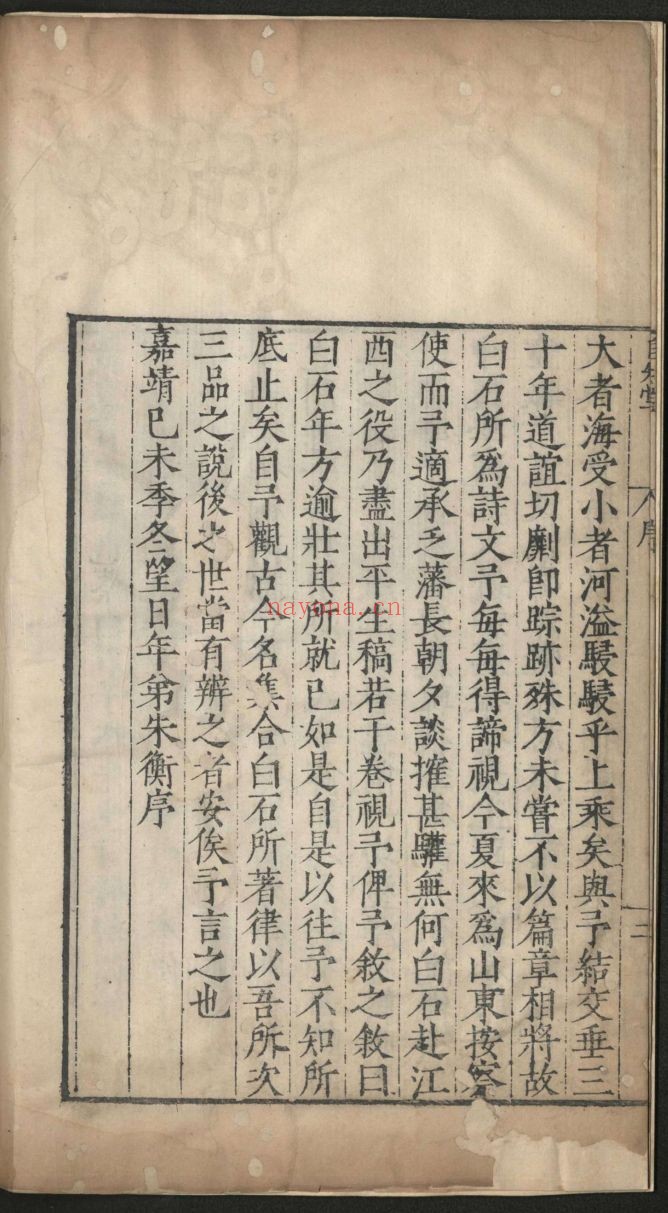 大者海受小者河溢駸駸乎上乘矣與予結交垂三
十年道誼切劘卽踪跡殊方未嘗不以篇章相將故
白石所爲詩文予每每得諦視今夏來爲山東按察
使而予適承乏藩長朝夕談搉甚驩無何白石赴江
西之役乃盡出平生稿若干卷視予俾予敘之敘曰
白石年方逾壯其所就已如是自是以往予不知所
底止矣自予觀古今名集合白石所著律以吾所次
三品之說後之世當有辨之者安俟予言之也
嘉靖己未季冬望日年弟朱衡序
序
二
nayona.cn